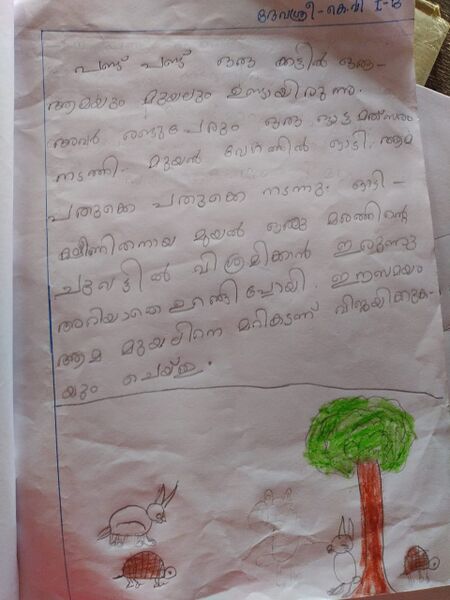 ദേവശ്രീ - കെ.വി I-B
പണ്ട് പണ്ട് ഒരു കാട്ടിൽ ഒരു-
ആമയും മുയലും ഉണ്ടായിരുന്നു.
അവർ രണ്ടുപേരും ഒരു ഓട്ട മത്സരം
നടത്തി- മുയൽ വേഗത്തിൽ ഓടി. ആമ
പതുക്കെ പതുക്കെ നടന്നു. ഓടി -
ക്ഷീണിതനായ മുയൽ ഒരു മരത്തിന്റെ
ചുവട്ടിൽ വിശ്രമിക്കാൻ ഇരുന്നു
അറിയാതെ ഉറങ്ങി പ്പോയി. ഈസമയം
ആമ മുയലിനെ മറികടന്ന് വിജയിക്കുക-
യും ചെയ്തു.